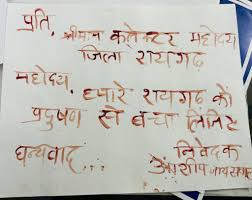 प्रति,
श्रीमान कलेक्टर महोदय
जिला रायगढ़
महोदय, हमारे रायगढ़ को
प्रदुषण से बचा लिजिए
धन्यवाद...
निवेदक